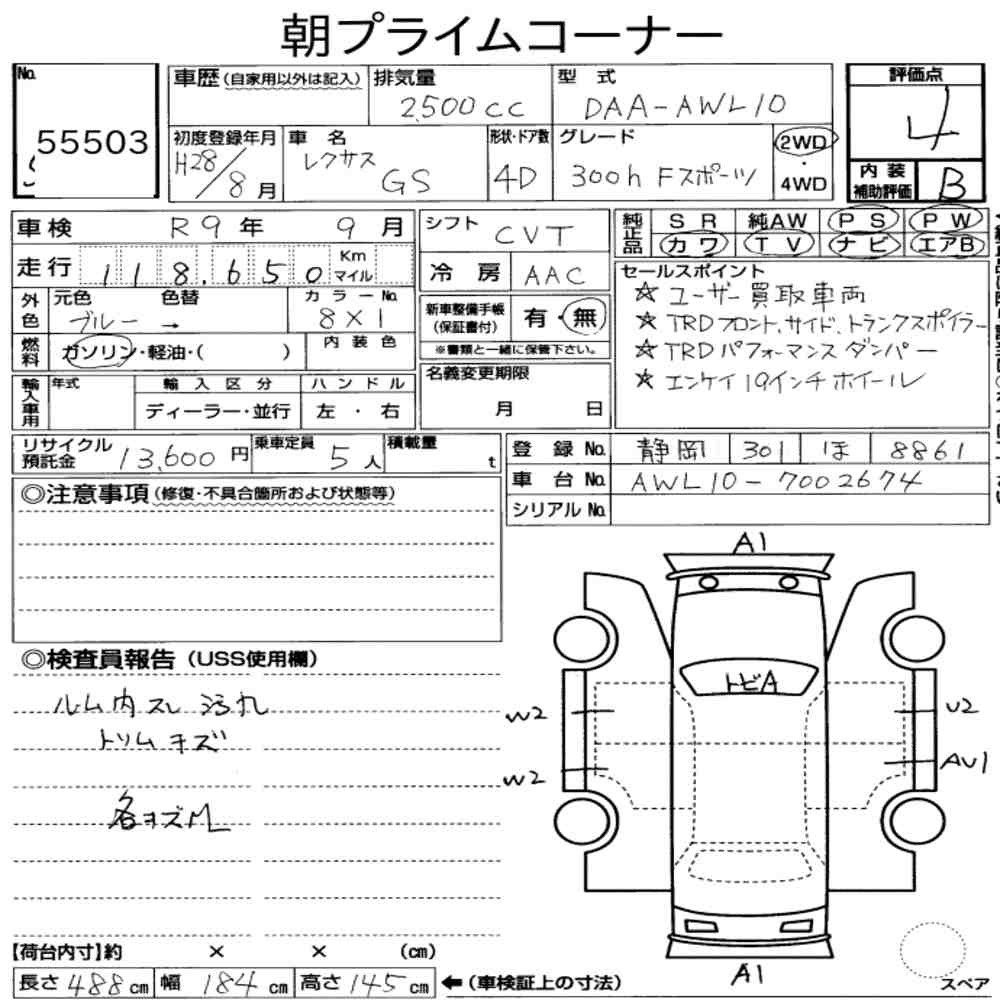 朝プライムコーナー
No.
55503
車歴(自家用以外は記入)
排気量
2,500cc
型 式
DAA-AWL10
評価点
4
内装
補助評価
B
初度登録年月
H28/8月
車 名
レクサス
GS
形状・ドア数
4D
グレード
300h Fスポーツ
2WD
・
4WD
車検 R9年 9月
走行 118.650 Km マイル
外色
元色 ブルー →
色替
カラーNo.
8X1
燃料
ガソリン・軽油・( )
内装色
輸入車用
年式
輸入区分
ディーラー・並行
ハンドル
左・右
シフト
CVT
冷 房 AAC
新車整備手帳
(保証書付)
有・無
※書類と一緒に保管下さい。
名義変更期限
月 日
純正品
SR 純AW PS PW
カワ TV ナビ エアB
セールスポイント
☆ ユーザー買取車両
☆ TRDフロント、サイド、トランクスポイラー
☆ TRDパフォーマンスダンパー
☆ エンケイ19インチホイール
リサイクル
預託金
13,600円
乗車定員
5人
積載量
t
登 録 No. 静岡 301 ほ 8861
車 台 No. AWL10-7002674
シリアルNo.
◎注意事項(修復・不具合箇所および状態等)
◎検査員報告(USS使用欄)
ルム内スレ汚れ
トリムキズ
各キズM
A1
トビA
W2
W2
U2
AU1
A1
スペア
【荷台内寸】約 × × (cm)
長さ 488 cm 幅 184 cm 高さ 145 cm ←(車検証上の寸法)